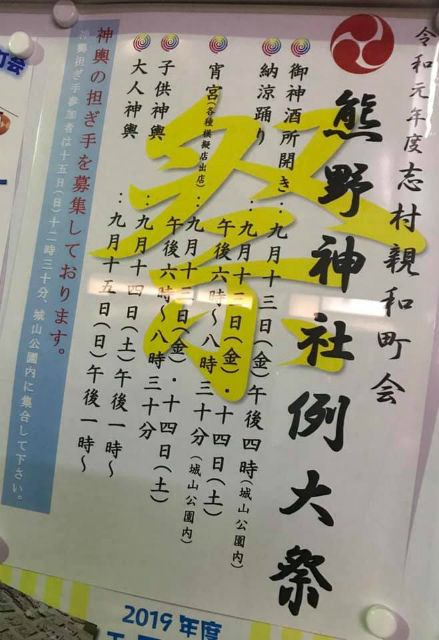 令和元年度志村親和町会
熊野神社例大祭
祭
御神酒所開き：九月十三日（金）午後四時（城山公園内）
納涼踊り：九月十三日（金）・十四日（土）
午後六時〜八時三十分（城山公園内）
宵宮（各種模擬店出店）：九月十三日（金）・十四日（土）
午後六時〜八時三十分
子供神輿：九月十四日（土）午後一時〜
大人神輿：九月十五日（日）午後一時〜
神輿の担ぎ手を募集しております。
神輿担ぎ手参加者は十五日（日）十二時三十分、城山公園内に集合して下さい。
町会
2019年度